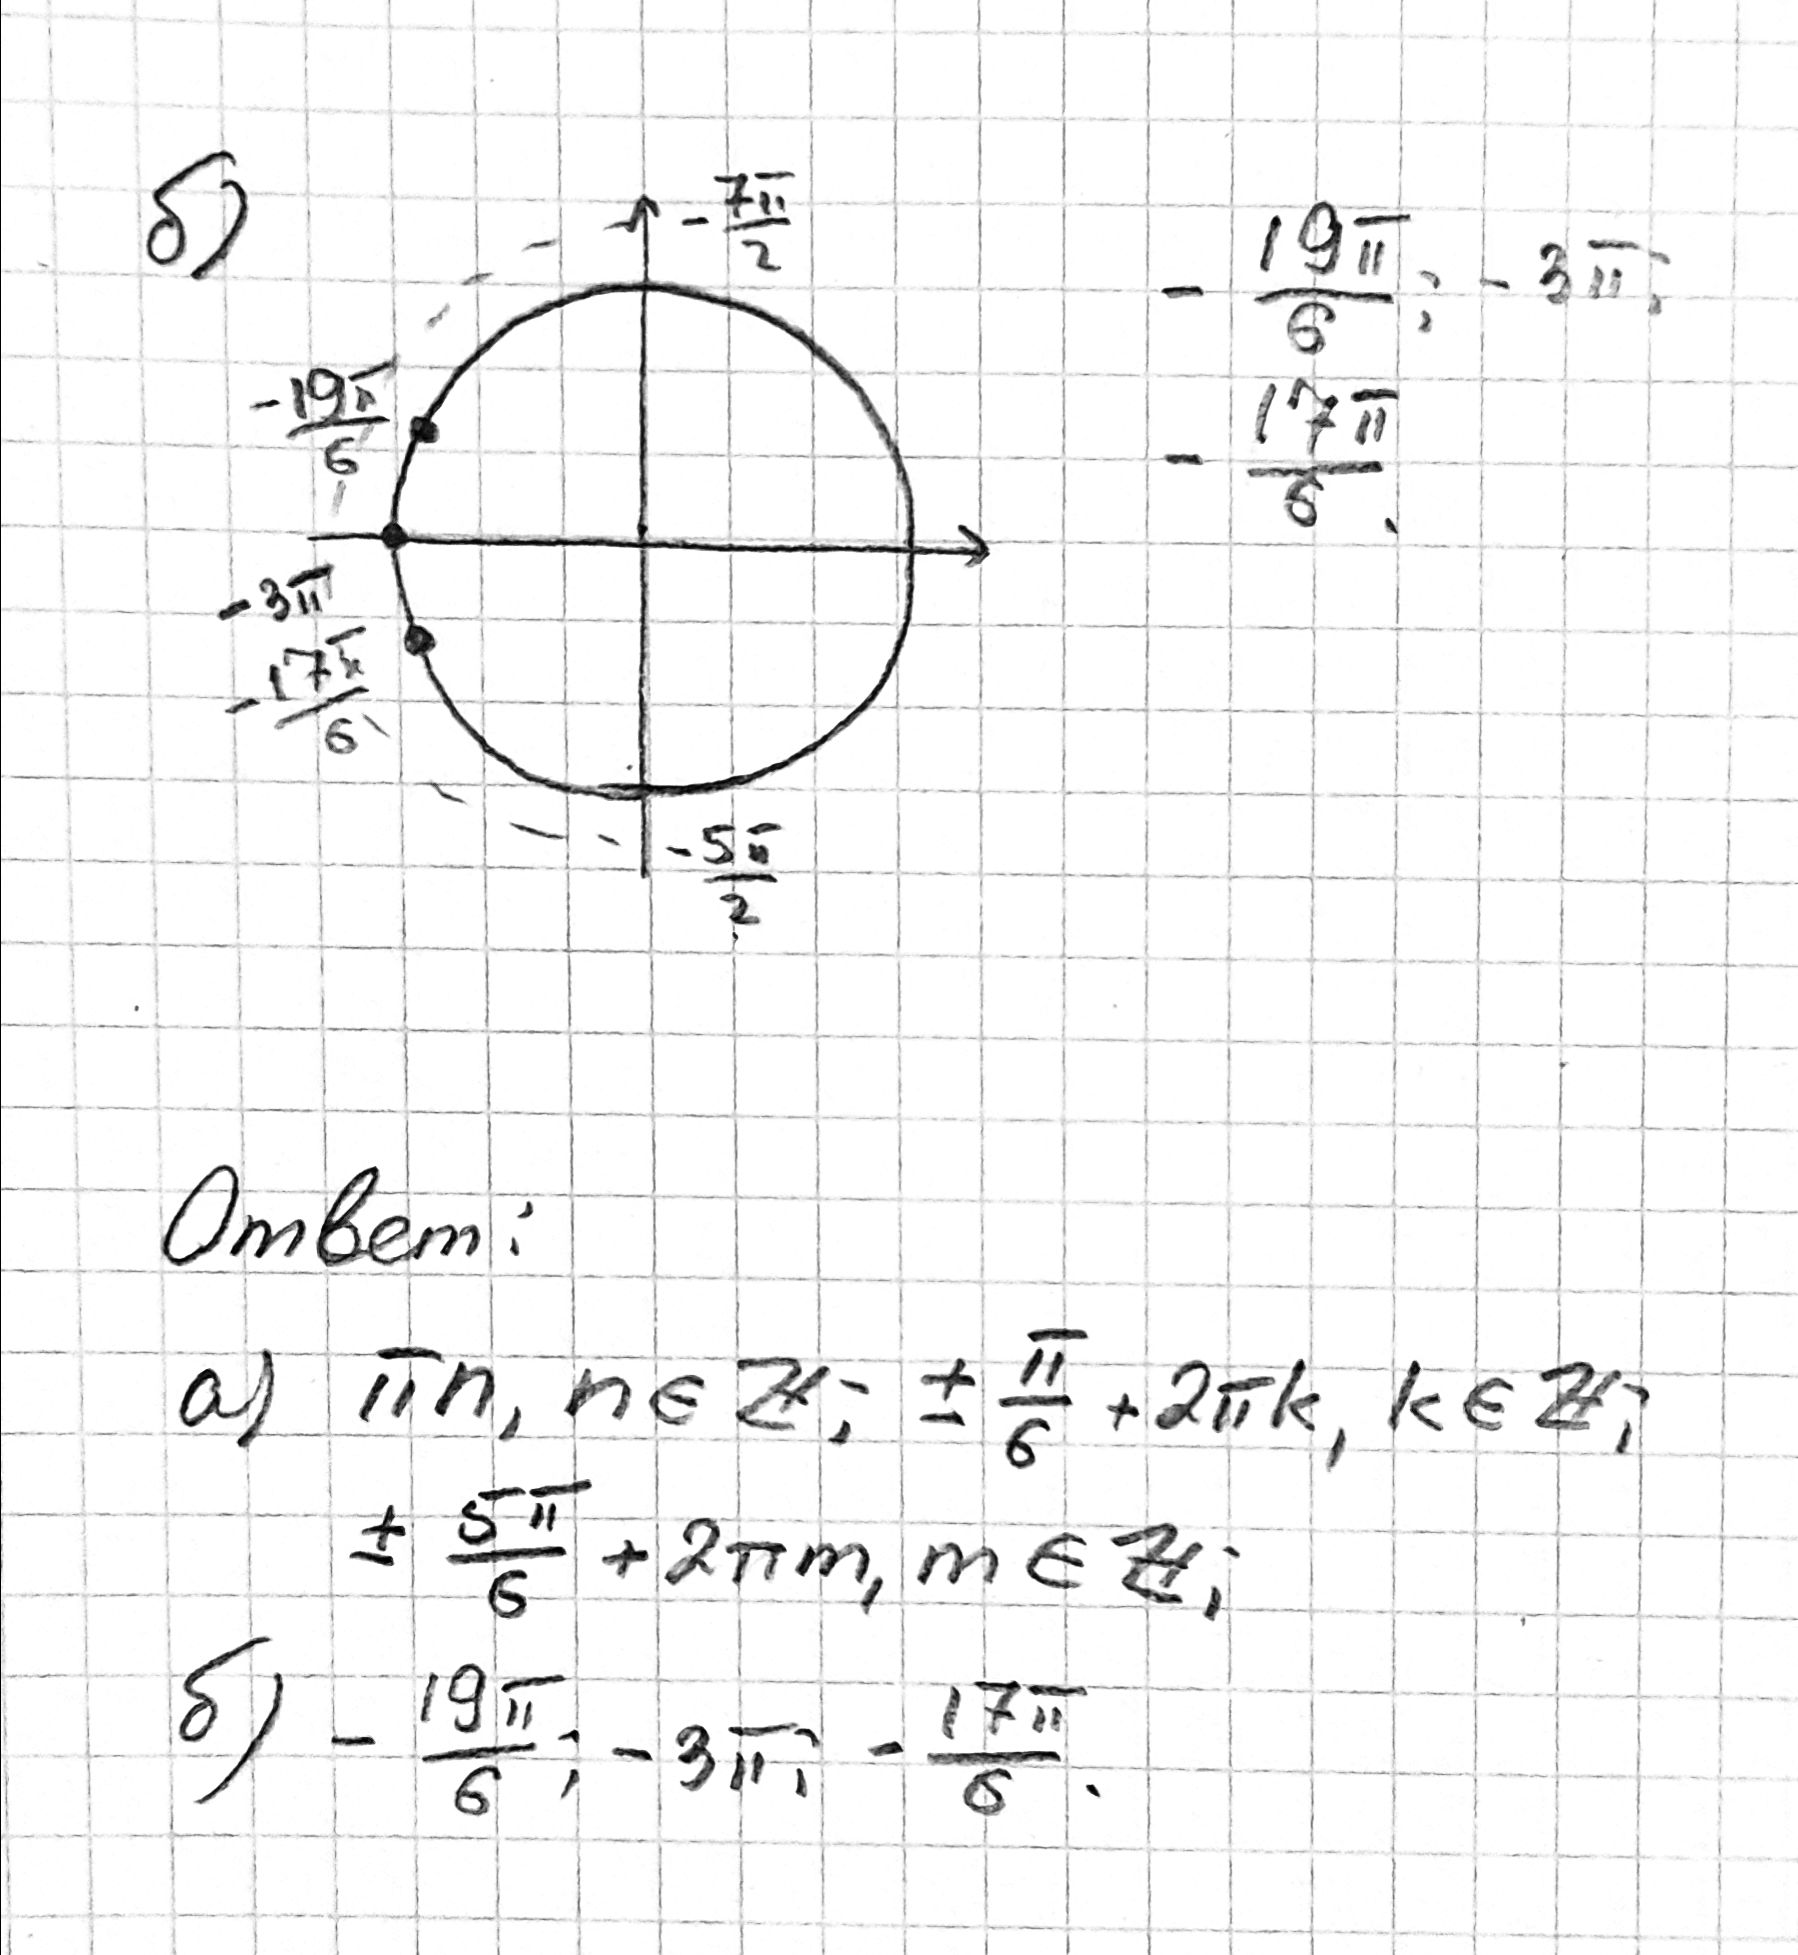 б)
-7π/2
-19π/6; -3π;
-17π/6.
-19π/6
-3π
-17π/6
-5π/2
Ответ:
а) πn, n∈ℤ; ±π/6 + 2πk, k∈ℤ;
±5π/6 + 2πm, m∈ℤ;
б) -19π/6; -3π; -17π/6.